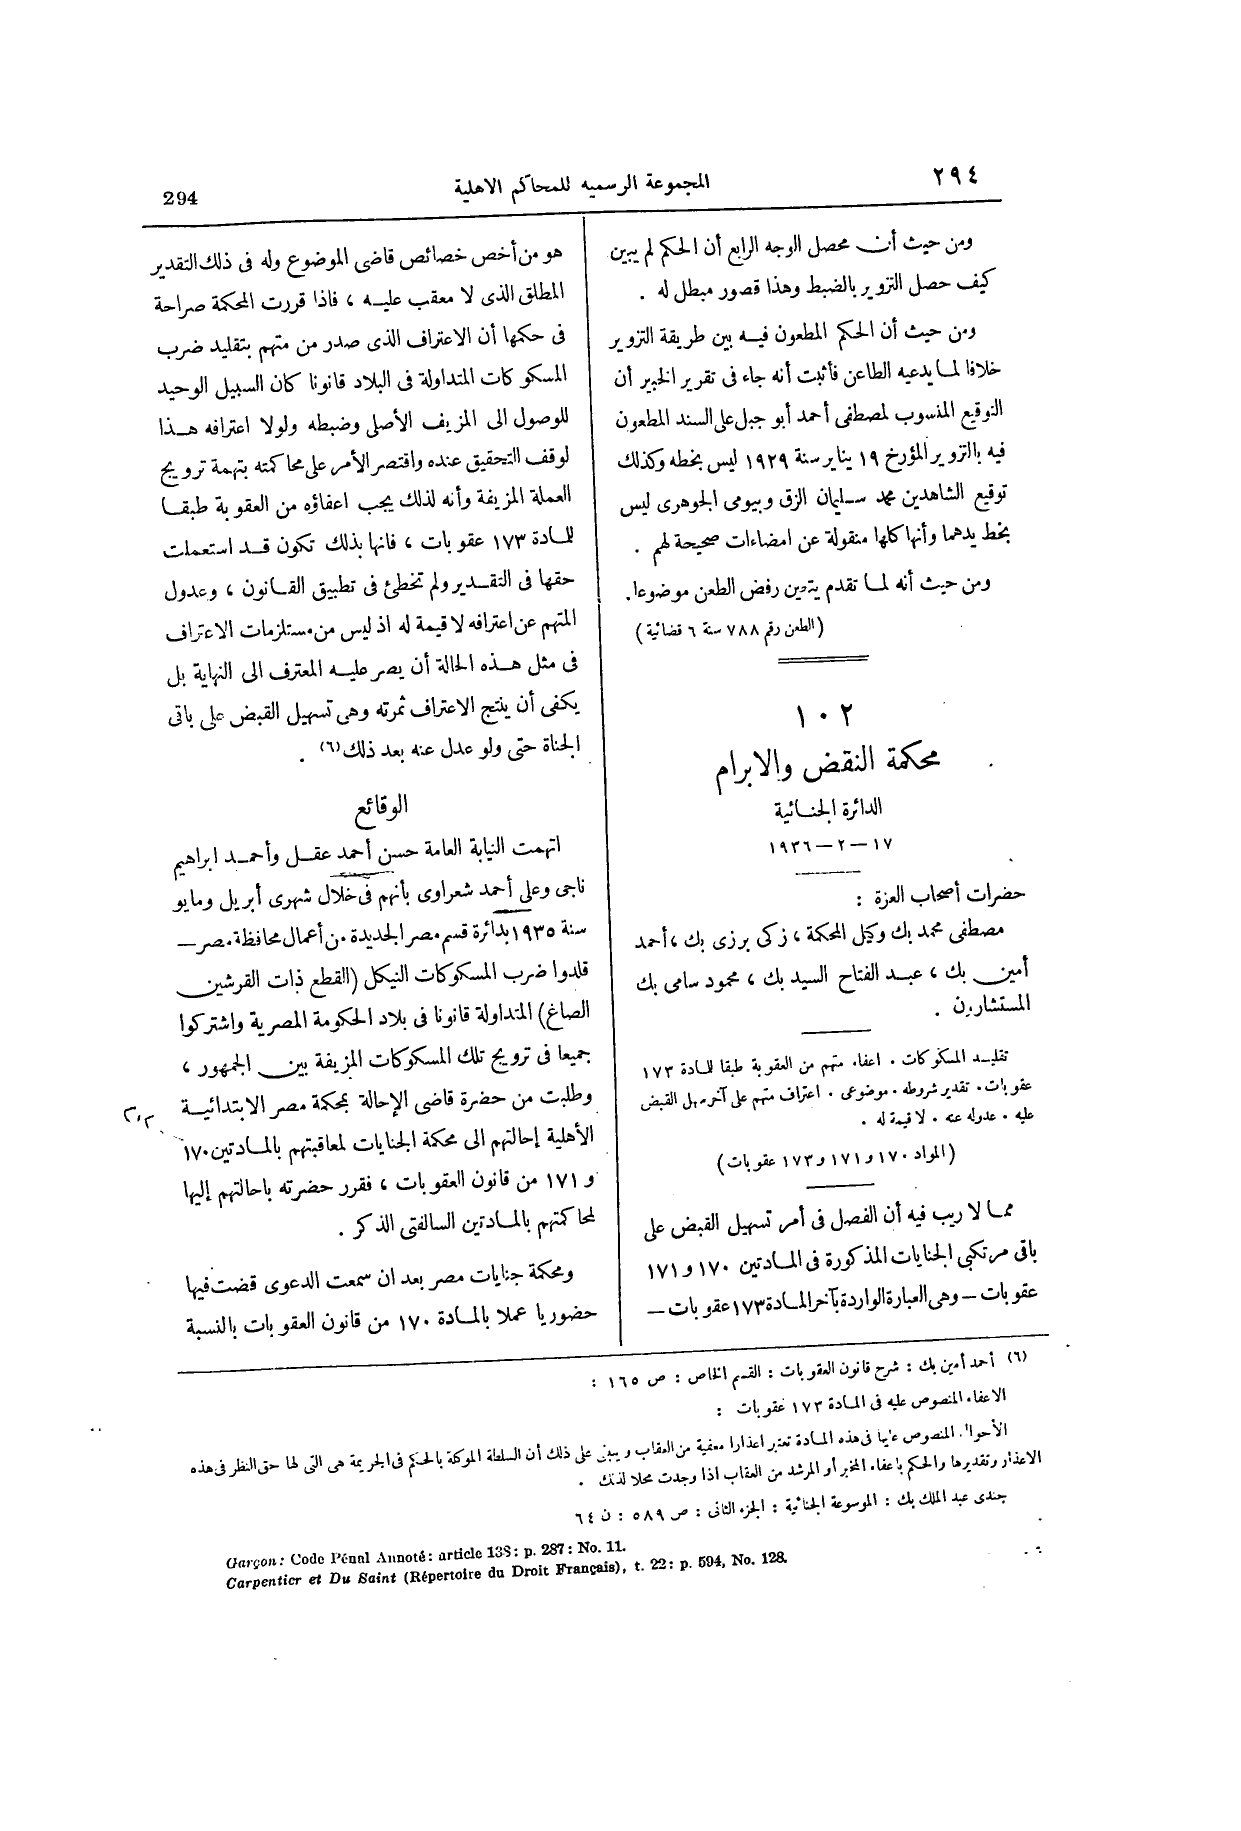 ٢٩٤
المجموعة الرسميه للمحاكم الاهلية
294
ومن حيث أن محصل الوجه الرابع أن الحكم لم يبين
كيف حصل التزوير بالضبط وهذا قصور مبطل له .
ومن حيث أن الحكم المطعون فيه بين طريقة التزوير
خلافا لما يدعيه الطاعن فأثبت أنه جاء فى تقرير الخبير أن
التوقيع المنسوب لمصطفى أحمد أبو جبل على السند المطعون
فيه بالتزوير المؤرخ ١٩ يناير سنة ١٩٢٩ ليس بخطه وكذلك
توقيع الشاهدين محمد سليمان الزق وبيومى الجوهرى ليس
بخط يدهما وأنها كلها منقولة عن امضاءات صحيحة لهم .
ومن حيث أنه لما تقدم يتعين رفض الطعن موضوعا.
(الطعن رقم ٧٨٨ سنة ٦ قضائية)
١٠٢
محكمة النقض والابرام
الدائرة الجنائية
١٧ — ٢ — ١٩٣٦
حضرات أصحاب العزة :
مصطفى محمد بك وكيل المحكمة ، زكى برزى بك ، أحمد
أمين بك ، عبد الفتاح السيد بك ، محمود سامى بك
المستشارين .
تقليد المسكوكات . اعفاء متهم من العقوبة طبقا للمادة ١٧٣
عقوبات . تقدير شروطه . موضوعى . اعتراف متهم على آخر سهل القبض
عليه . عدوله عنه . لا قيمة له .
(المواد ١٧٠ و ١٧١ و ١٧٣ عقوبات)
مما لا ريب فيه أن الفصل فى أمر تسهيل القبض على
باقى مرتكبى الجنايات المذكورة فى المادتين ١٧٠ و ١٧١
عقوبات — وهى العبارة الواردة بآخر المادة ١٧٣ عقوبات —
هو من أخص خصائص قاضى الموضوع وله فى ذلك التقدير
المطلق الذى لا معقب عليه ، فاذا قررت المحكمة صراحة
فى حكمها أن الاعتراف الذى صدر من متهم بتقليد ضرب
المسكوكات المتداولة فى البلاد قانونا كان السبيل الوحيد
للوصول الى المزيف الأصلى وضبطه ولولا اعترافه هذا
لوقف التحقيق عنده واقتصر الأمر على محاكمته بتهمة ترويج
العملة المزيفة وأنه لذلك يجب اعفاؤه من العقوبة طبقا
للمادة ١٧٣ عقوبات ، فانها بذلك تكون قد استعملت
حقها فى التقدير ولم تخطئ فى تطبيق القانون ، وعدول
المتهم عن اعترافه لا قيمة له اذ ليس من مستلزمات الاعتراف
فى مثل هذه الحالة أن يصر عليه المعترف الى النهاية بل
يكفى أن ينتج الاعتراف ثمرته وهى تسهيل القبض على باقى
الجناة حتى ولو عدل عنه بعد ذلك (٦) .
الوقائع
اتهمت النيابة العامة حسن أحمد عقل وأحمد ابراهيم
ناجى وعلى أحمد شعراوى بأنهم فى خلال شهرى أبريل ومايو
سنة ١٩٣٥ بدائرة قسم مصر الجديدة من أعمال محافظة مصر —
قلدوا ضرب المسكوكات النيكل (القطع ذات القرشين
الصاغ) المتداولة قانونا فى بلاد الحكومة المصرية واشتركوا
جميعا فى ترويج تلك المسكوكات المزيفة بين الجمهور ،
وطلبت من حضرة قاضى الإحالة بمحكمة مصر الابتدائية
الأهلية إحالتهم الى محكمة الجنايات لمعاقبتهم بالمادتين ١٧٠
و ١٧١ من قانون العقوبات ، فقرر حضرته باحالتهم إليها
لمحاكمتهم بالمادتين السالفتى الذكر .
ومحكمة جنايات مصر بعد ان سمعت الدعوى قضت فيها
حضوريا عملا بالمادة ١٧٠ من قانون العقوبات بالنسبة
(٦) أحمد أمين بك : شرح قانون العقوبات : القسم الخاص : ص ١٦٥ :
الاعفاء المنصوص عليه فى المادة ١٧٣ عقوبات :
الأحوال المنصوص عليها فى هذه المادة تعتبر اعذارا معفية من العقاب ويبنى على ذلك أن السلطة الموكلة بالحكم فى الجريمة هى التى لها حق النظر فى هذه
الاعذار وتقديرها والحكم باعفاء المخبر أو المرشد من العقاب اذا وجدت محلا لذلك .
جندى عبد الملك بك : الموسوعة الجنائية : الجزء الثانى : ص ٥٨٩ : ن ٦٤
Garçon: Code Pénal Annoté: article 138: p. 287: No. 11.
Carpentier et Du Saint (Répertoire du Droit Français), t. 22: p. 594, No. 128.